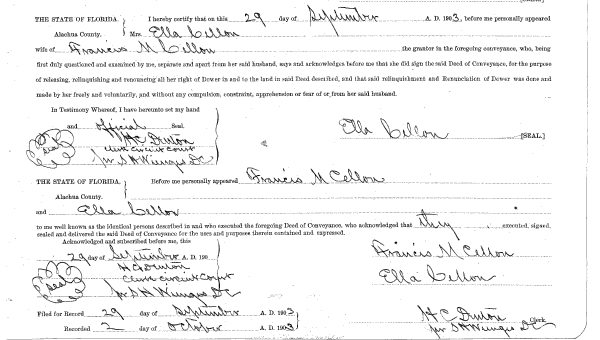 THE STATE OF FLORIDA. } I hereby certify that on this 29 day of September A. D. 1903, before me personally appeared
Alachua County. Mrs. Ella Cellon
wife of Francis M Cellon the grantor in the foregoing conveyance, who, being
first duly questioned and examined by me, separate and apart from her said husband, says and acknowledges before me that she did sign the said Deed of Conveyance, for the purpose
of releasing, relinquishing and renouncing all her right of Dower in and to the land in said Deed described, and that said relinquishment and Renunciation of Dower was done and
made by her freely and voluntarily, and without any compulsion, constraint, apprehension or fear of or from her said husband.
In Testimony Whereof, I have hereunto set my hand
and official Seal
Seal H C Denton Ella Cellon [SEAL.]
Clerk Circuit Court
per S H Wienges DC
THE STATE OF FLORIDA. } Before me personally appeared Francis M Cellon
Alachua County.
and Ella Cellon
to me well known as the identical persons described in and who executed the foregoing Deed of Conveyance, who acknowledged that they executed, signed,
sealed and delivered the said Deed of Conveyance for the uses and purposes therein contained and expressed.
Acknowledged and subscribed before me, this
29 day of September A. D. 190 Francis M Cellon
H C Denton
Seal Clerk Circuit Court Ella Cellon
per S H Wienges DC
Filed for Record 29 day of September A. D. 1903 H C Denton Clerk
Recorded 2 day of October A. D. 1903 per S H Wienges DC